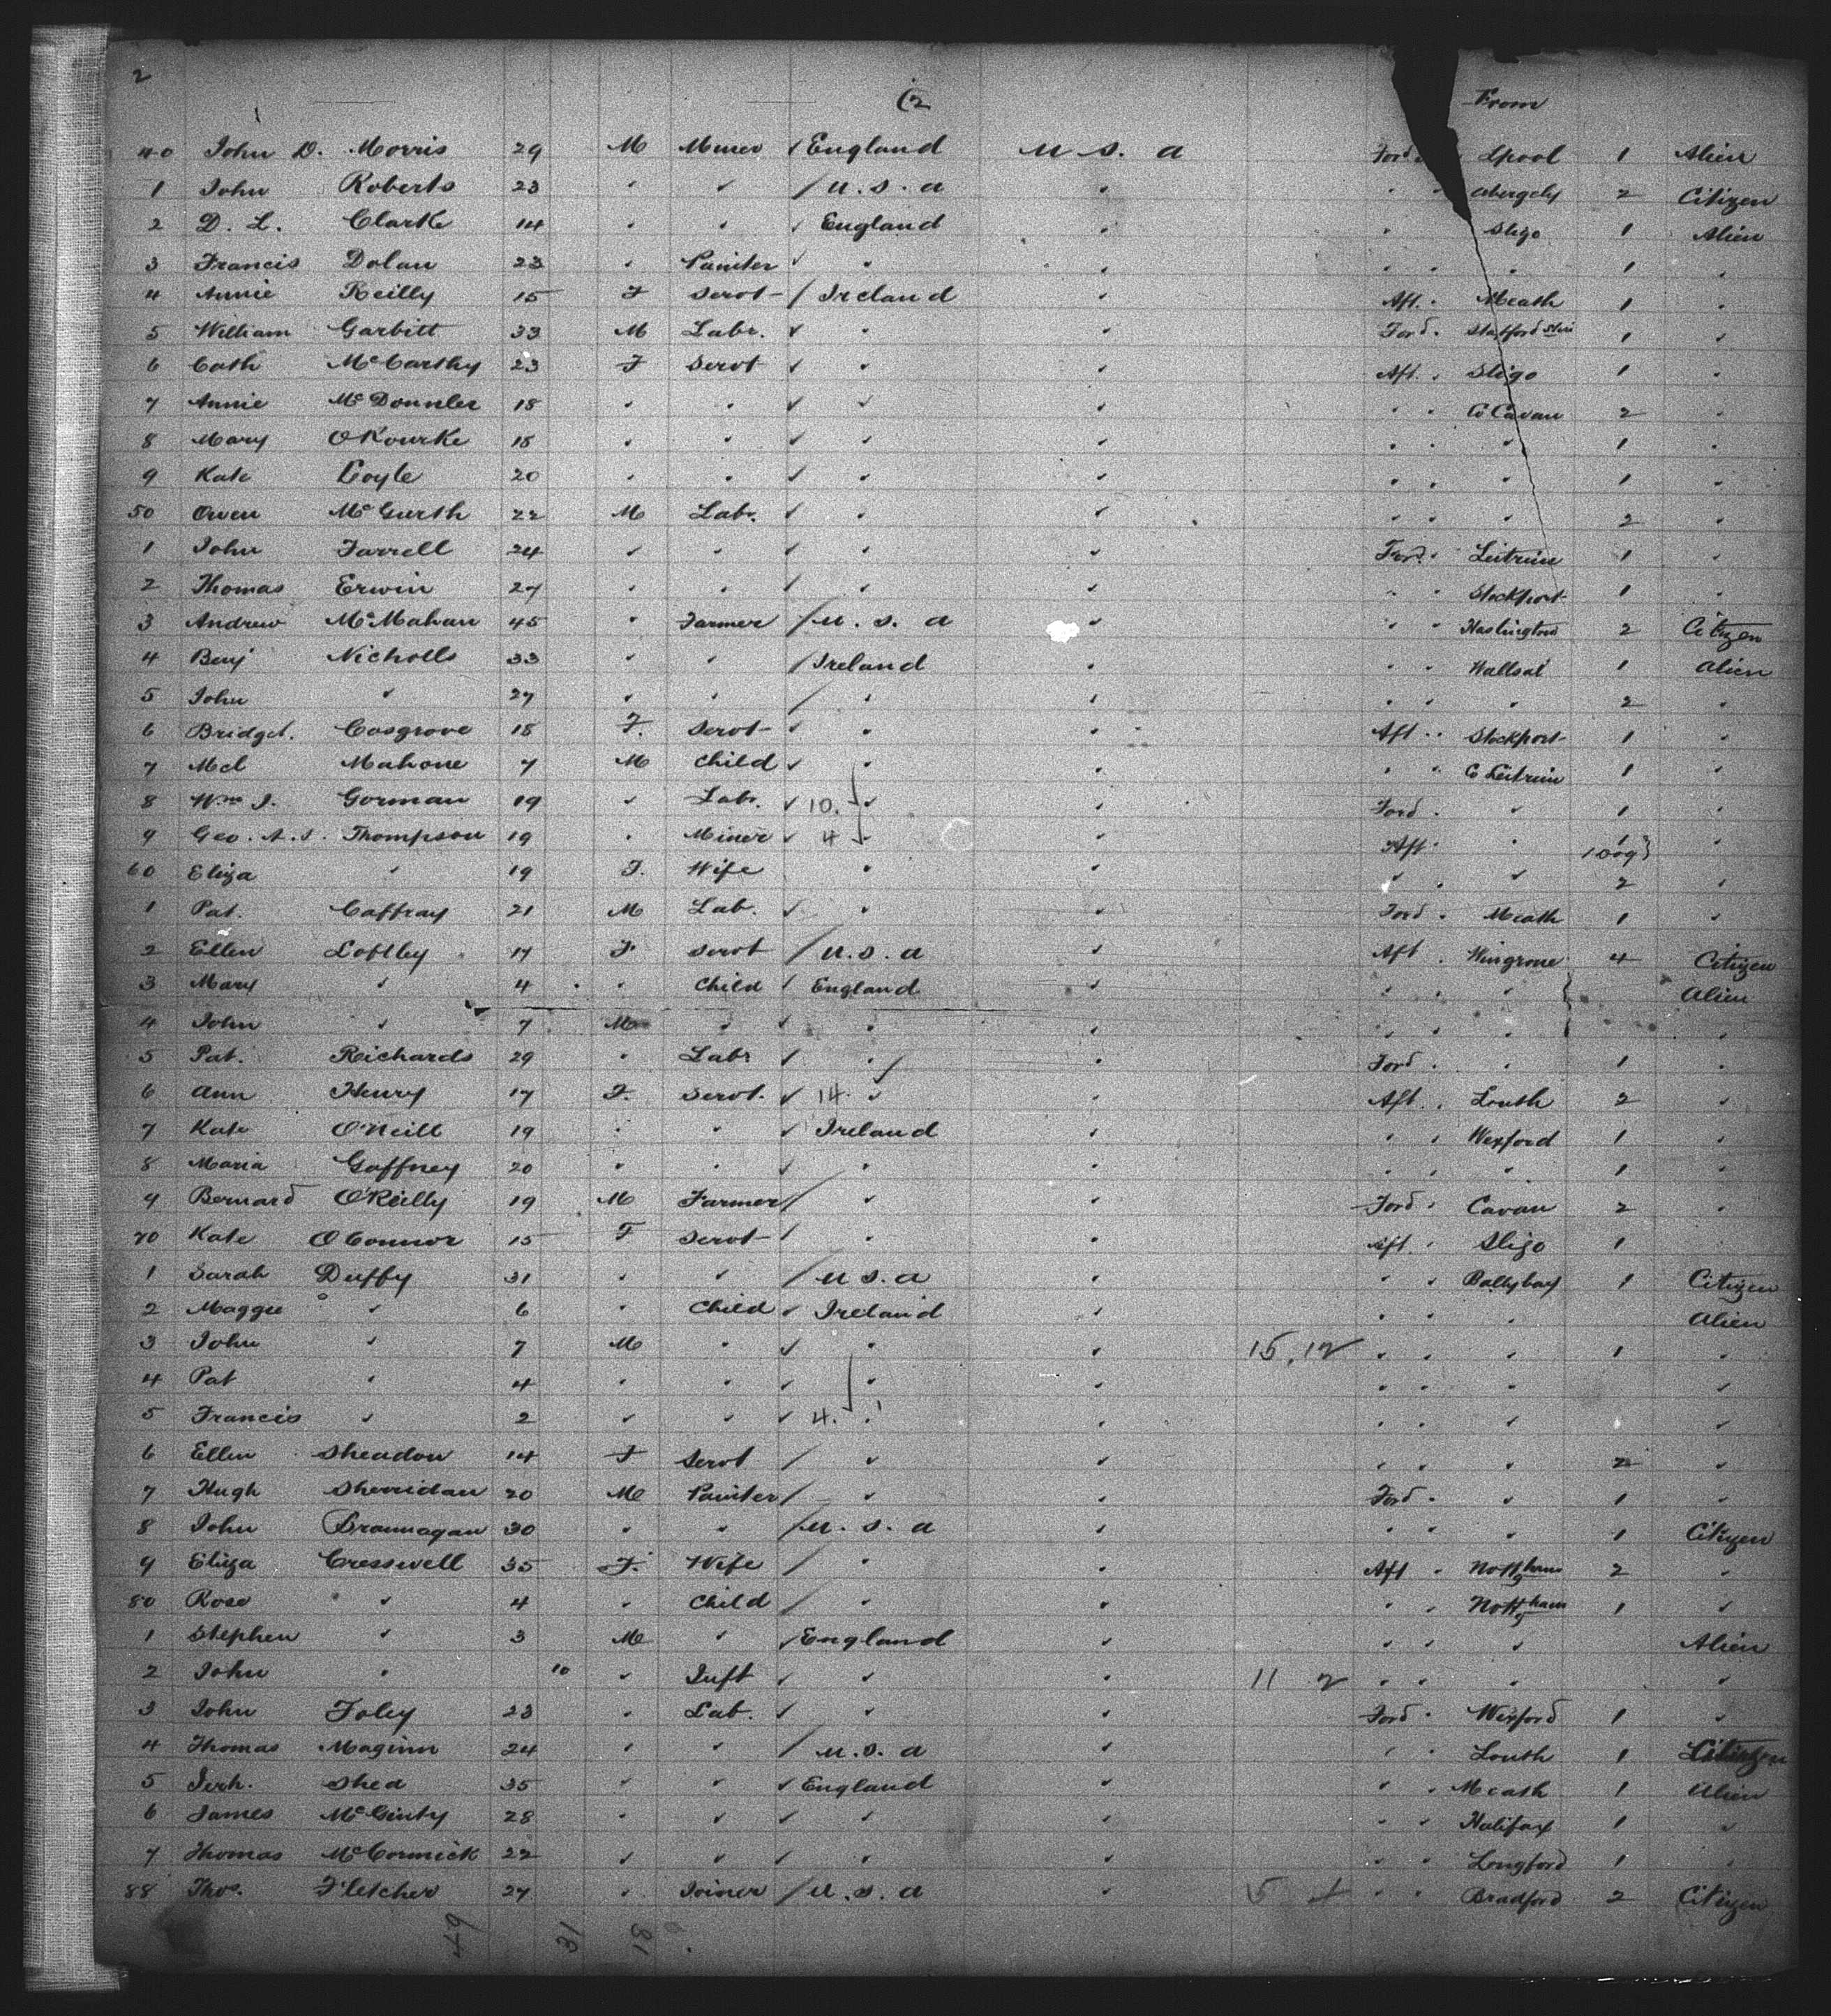 2
(2
From
40 John D. Morris 29 M Miner / England U. S. A Ford " Lpool 1 Alien
1 John Roberts 23 " " / U. S. A " " " Abergely 2 Citizen
2 D. L. Clarke 14 " " / England " " Sligo 1 Alien
3 Francis Dolan 23 " Painter / " " " " " 1 "
4 Annie Reilly 15 F Servt / Ireland " Aft. " Meath 1 "
5 William Garbitt 33 M Labr. / " " Ford " Stafford Shi 1 "
6 Cath McCarthy 23 F Servt / " " Aft. " Sligo 1 "
7 Annie McDonnler 18 " " / " " " " Co Cavan 2 "
8 Mary O'Rourke 18 " " / " " " " " 1 "
9 Kate Coyle 20 " " / " " " " " 1 "
50 Owen McGurth 22 M Labr. / " " " " " 2 "
1 John Farrell 24 " " / " " Ford " Leitrim 1 "
2 Thomas Erwin 27 " " / " " " " Stockport 1 "
3 Andrew McMahan 45 " Farmer / U. S. A " " " Haslington 2 Citizen
4 Benj Nicholls 33 " " / Ireland " " " Wallsal 1 Alien
5 John " 27 " " / " " " " " 2 "
6 Bridget. Cosgrove 18 F. Servt / " " Aft " " Stockport 1 "
7 Mcl Mahone 7 M Child / " " " " Co Leitrim 1 "
8 Wm J. Gorman 19 " Labr. / 10. " " Ford " " 1 "
9 Geo. A. S. Thompson 19 " Miner / 4 " " Aft " " 1 "
1009}
60 Eliza " 19 F. Wife " " " " " 2 "
1 Pat. Caffray 21 M Lab. / " " Ford " Meath 1 "
2 Ellen Loftley 17 F Servt / U. S. A " Aft " Wingrone 4 Citizen
3 Mary " 4 " Child / England " " " " } Alien
4 John " 7 M " / " " " " " "
5 Pat. Richards 29 " Labr / " " Ford " " 1 "
6 Ann Henry 17 F. Servt. / 14. " " Aft. " Louth 2 "
7 Kate O'Neill 19 " " / Ireland " " " Wexford 1 "
8 Maria Gaffney 20 " " / " " " " " 1 "
9 Bernard O'Reilly 19 M Farmer / " " Ford " Cavan 2 "
70 Kate O'Connor 15 F Servt / " " Aft. " Sligo 1 "
1 Sarah Duffy 31 " " / U S. A " " " Ballybay 1 Citizen
2 Maggie " 6 " Child / Ireland " " " " Alien
3 John " 7 M " / " " 15. 12 " " " 1 "
4 Pat " 4 " " / " " " " " "
5 Francis " 2 " " / 4. " " " " " "
6 Ellen Sheadon 14 F Servt / " " " " " 2 "
7 Hugh Sherridan 20 M Painter / " " Ford " " 1 "
8 John Brannagan 30 " " / U. S. A " " " " 1 Citizen
9 Eliza Cresswell 35 F. Wife / " " Aft " Nottgham 2 "
80 Rose " 4 " Child / " " " " Nottgham 1 "
1 Stephen " 3 M " / England " " " " Alien
2 John " 10 " Inft / " " 11 2 " " " "
3 John Foley 23 " Lab. / " " Ford " Wexford 1 "
4 Thomas Maginn 24 " " / U. S. A " " " Louth 1 Citizen
5 Jerh. Shea 35 " " / England " " " Meath 1 Alien
6 James McGinty 28 " " / " " " " Halifax 1 "
7 Thomas McCormick 22 " " / " " " " Longford 1 "
88 Thos. Fletcher 27 " Joiner / U. S. A " 5 + " " Bradford 2 Citizen
49 31 18